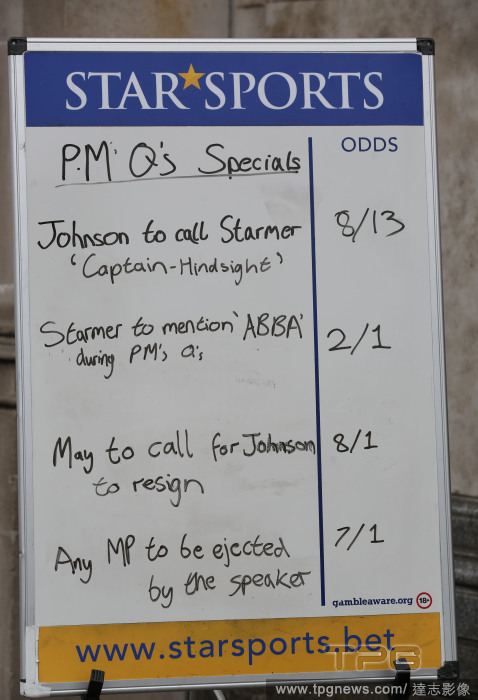 STAR★SPORTS
P.M' Q's Specials
ODDS
Johnson to call Starmer
'Captain-Hindsight'
8/13
Starmer to mention 'ABBA'
during PM's Q's
2/1
May to call for Johnson
to resign
8/1
Any MP to be ejected
by the speaker
7/1
gambleaware.org 18+
www.starsports.bet
TPG
www.tpgnews.com/達志影像